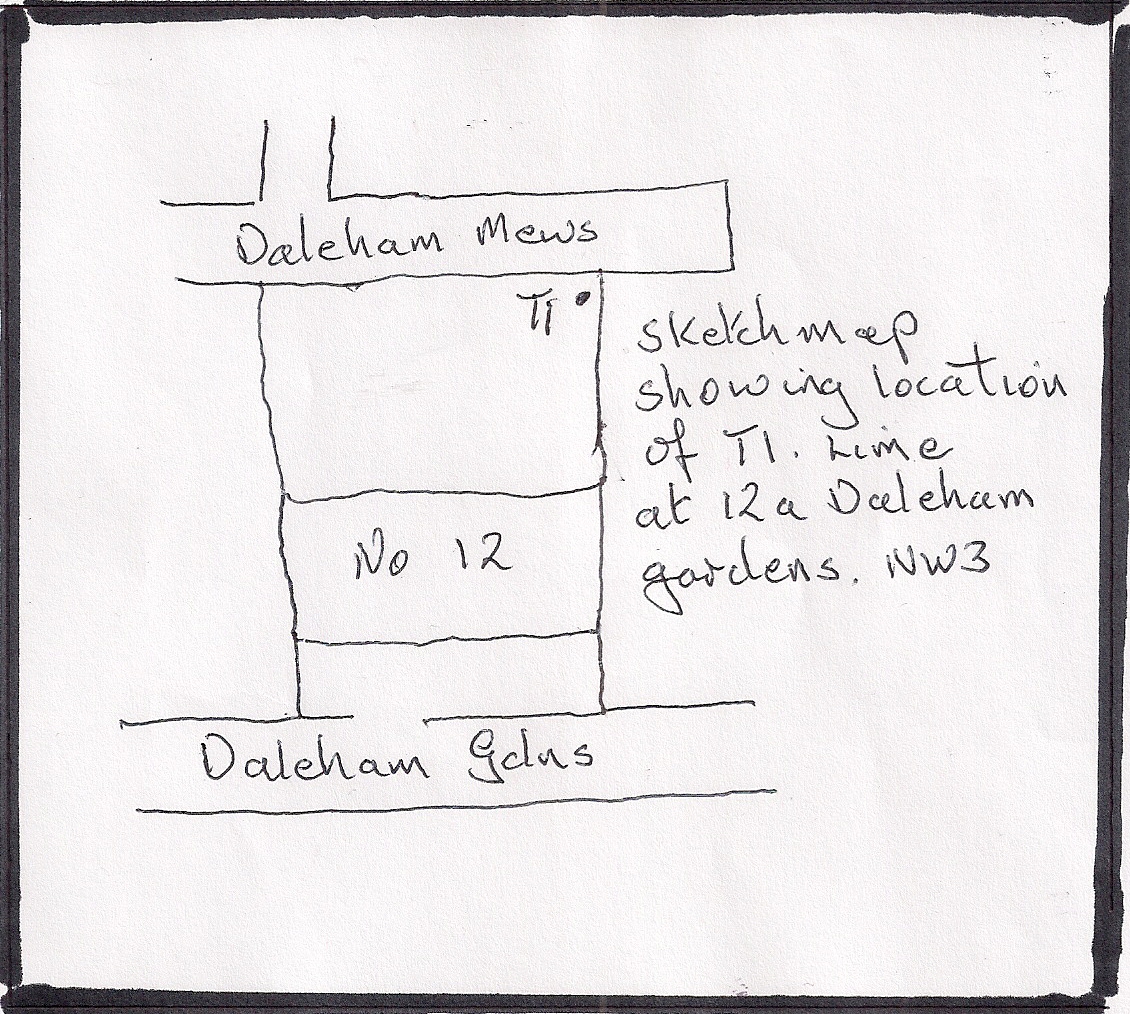 Daleham Mews
T1
sketch map
showing location
of T1. Lime
at 12a Daleham
gardens. NW3
No 12
Daleham Gdns